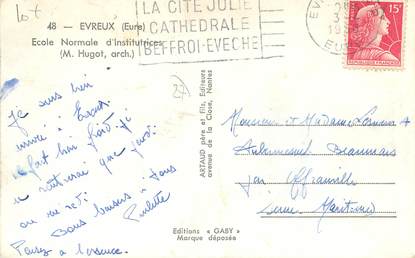 lot
48 - EVREUX (Eure)
Ecole Normale d'Institutrices
(M. Hugot, arch.)
LA CITÉ JULIE
CATHEDRALE
BEFFROI-EVECHE
EV
EU
15F
27
Je suis bien
arrivée à
fait bien froid. Je
que jeudi
ou
Bons baisers à tous
Paulette
Passez à l'essence.
ARTAUD père et fils, Editeurs
avenue de la Close, Nantes
Editions « GABY »
Marque déposée
Monsieur et Madame
Aubermesnil Beaumais
par Offranville
Seine Maritime